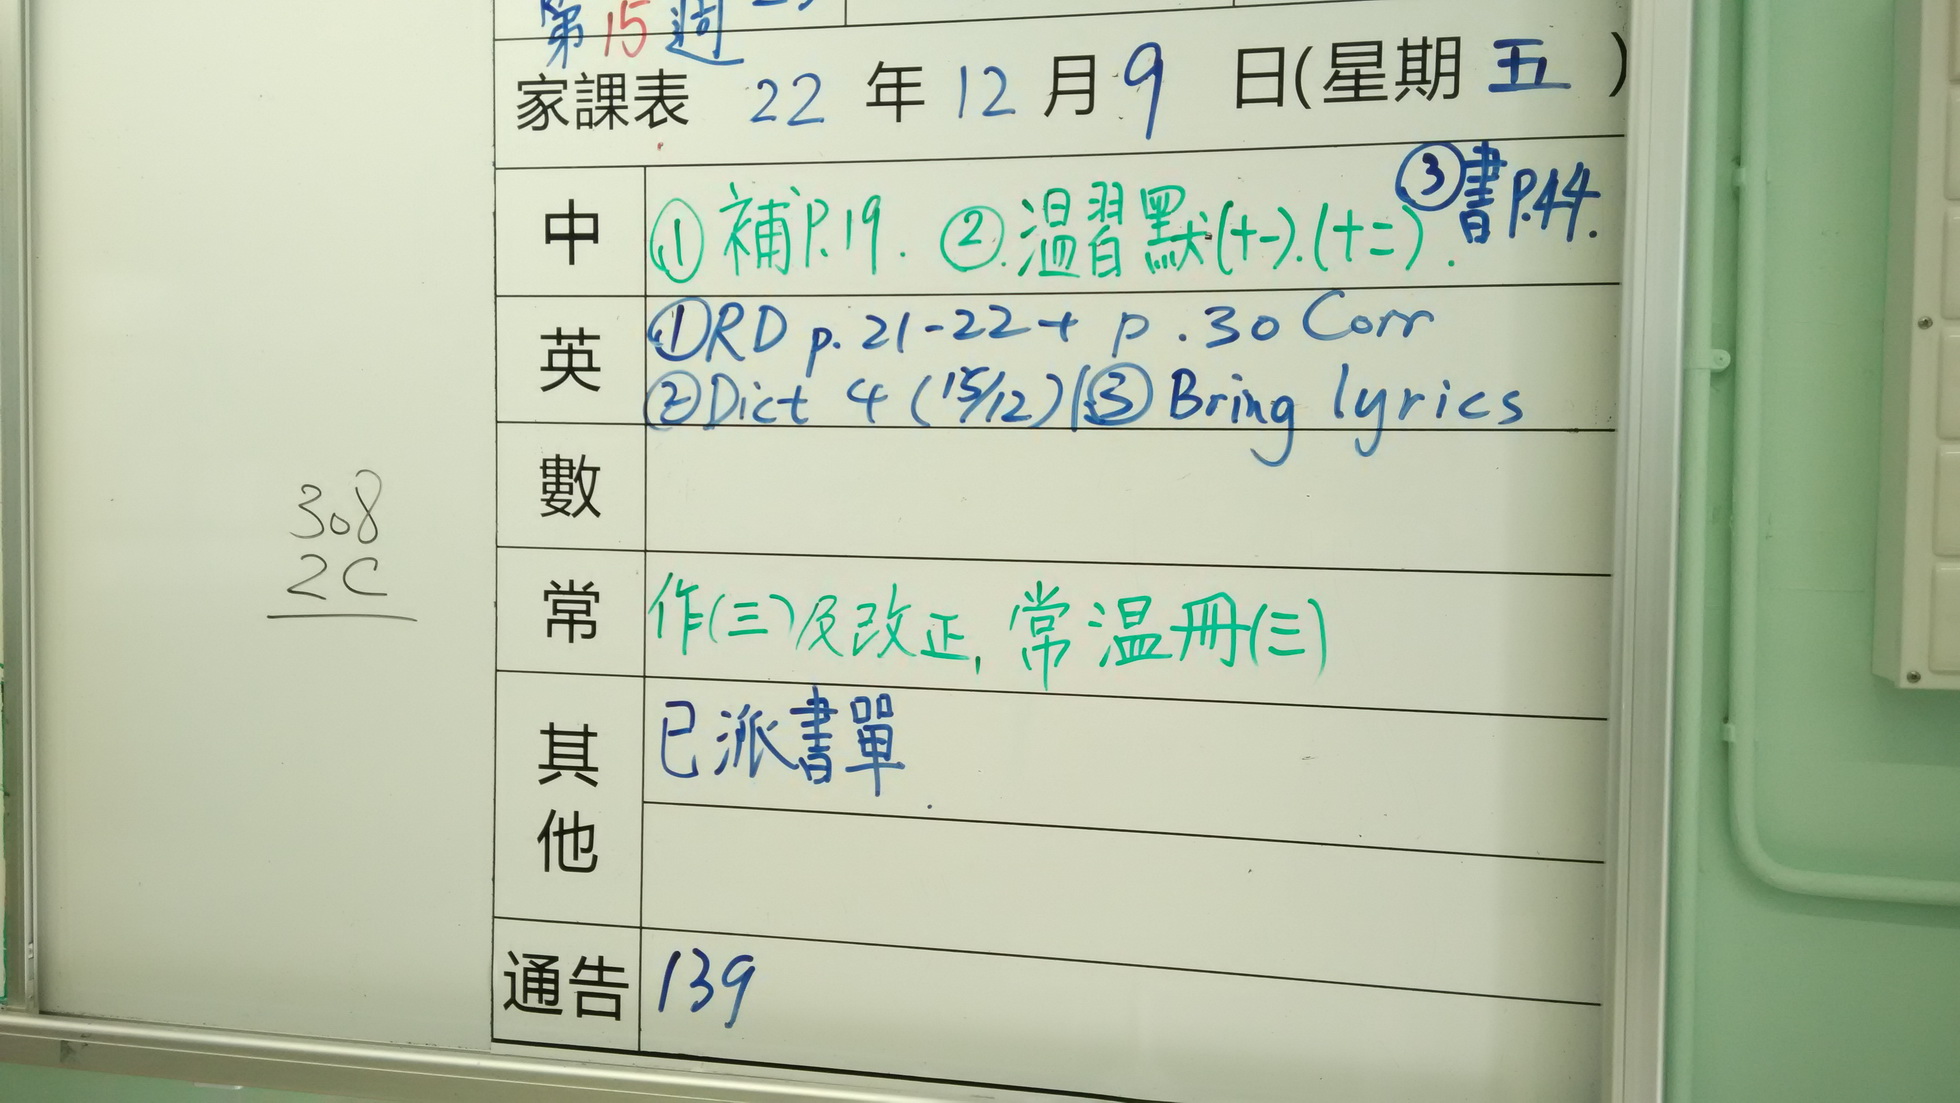 第15週
家課表 22 年 12 月 9 日(星期 五 )
中 ①補P.19. ②温習默(十一).(十二). ③書P.44.
英 ①RD p.21-22 + p.30 Corr
②Dict 4 (15/12) ③ Bring lyrics
數
308
2C
常 作(三)及改正, 常温冊(三)
其他 已派書單.
通告 139